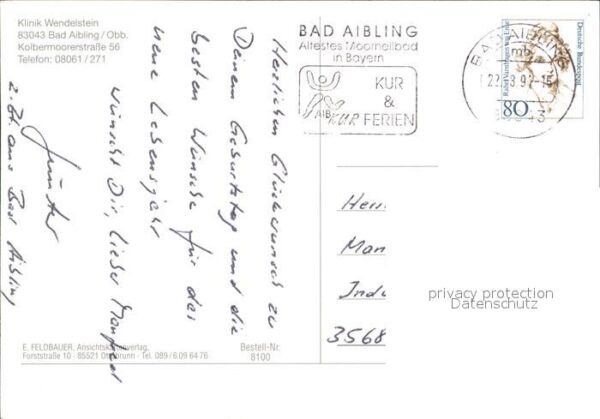 Klinik Wendelstein
83043 Bad Aibling / Obb.
Kolbermoorerstraße 56
Telefon: 08061 / 271
Herzlichen Glückwunsch zu
Deinem Geburtstag und die
besten Wünsche für das
neue Lebensjahr
wünscht Dir, lieber Manfred
Günter
z. Zt. aus Bad Aibling
E. FELDBAUER, Ansichtskartenverlag,
Forststraße 10 - 85521 Ottobrunn - Tel. 089 / 6 09 64 76
Bestell-Nr.
8100
BAD AIBLING
Ältestes Moorheilbad
in Bayern
KUR
&
FERIEN
AIB
KUR
BAD AIBLING
mb
Deutsche Bundespost
80
Her
Man
Indu
3568
privacy protection
Datenschutz